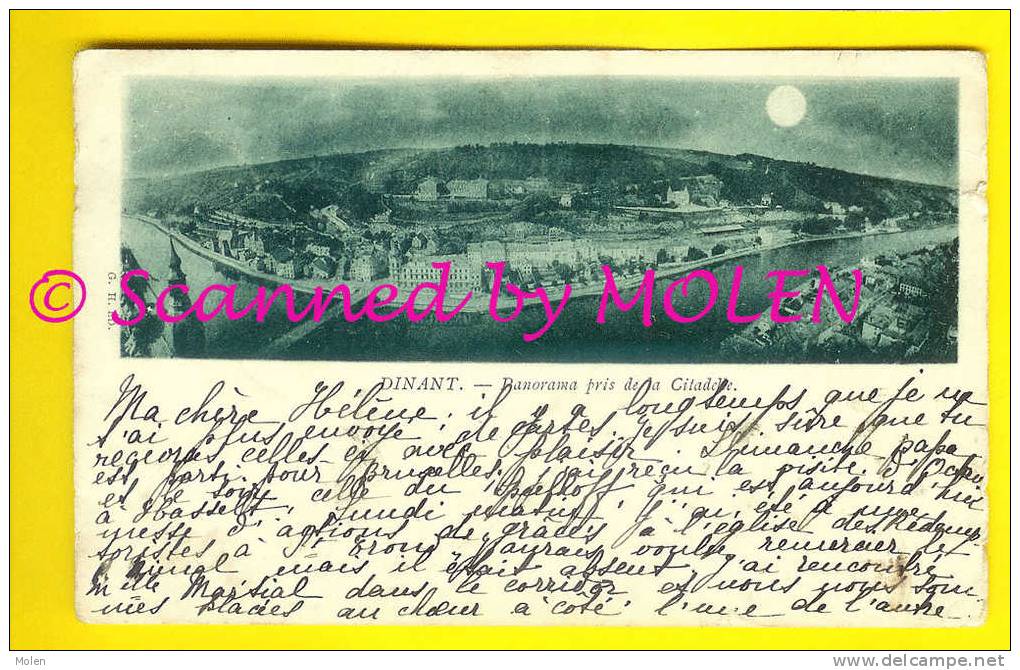 © Scanned by MOLEN
G. H. Ed.
DINANT. — Panorama pris de la Citadelle.
Ma chère Hélène, il y a longtemps que je ne
t'ai plus envoyé de cartes, je suis sûre que tu
reçevras celles ci avec plaisir. Dimanche papa
est parti pour Bruxelles, j'ai reçu la visite d'
et le soir celle du qui est aujourd'hui
à Hasselt. Lundi matin j'ai été à une
messe d'actions de grâces à l'église des Rédemp-
toristes à j'aurais voulu remercier le
mais il était absent. J'ai rencontré
Mlle Martial dans le corridor et nous nous som-
mes placées au chœur à côté l'une de l'autre.
Molen
www.delcampe.net